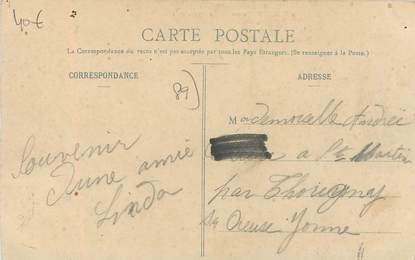 40€
CARTE POSTALE
La Correspondance au recto n'est pas acceptée par tous les Pays Étrangers. (Se renseigner à la Poste.)
CORRESPONDANCE
89)
Souvenir
d'une amie
Linda
ADRESSE
Mademoiselle Andrée
a St Martin
par Thorigny
Sr Oreuse Yonne